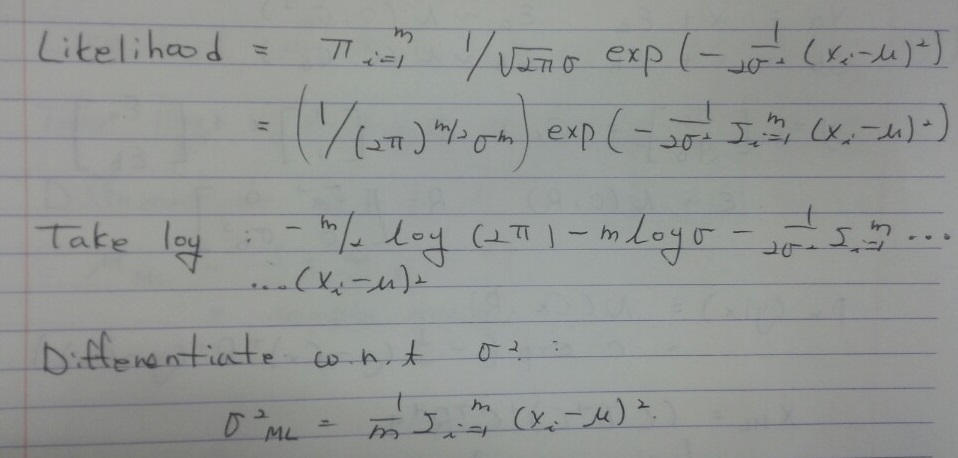 Likelihood = π i=1 m 1/√2π σ exp (- 1/2σ² (xi-μ)²)
= (1/(2π)^m/2 σ^m) exp (- 1/2σ² Σ i=1 m (xi-μ)²)
Take log : - m/2 log (2π) - m log σ - 1/2σ² Σ i=1 m ...
...(xi-μ)²
Differentiate w.r.t σ² :
σ²ML = 1/m Σ i=1 m (xi-μ)².